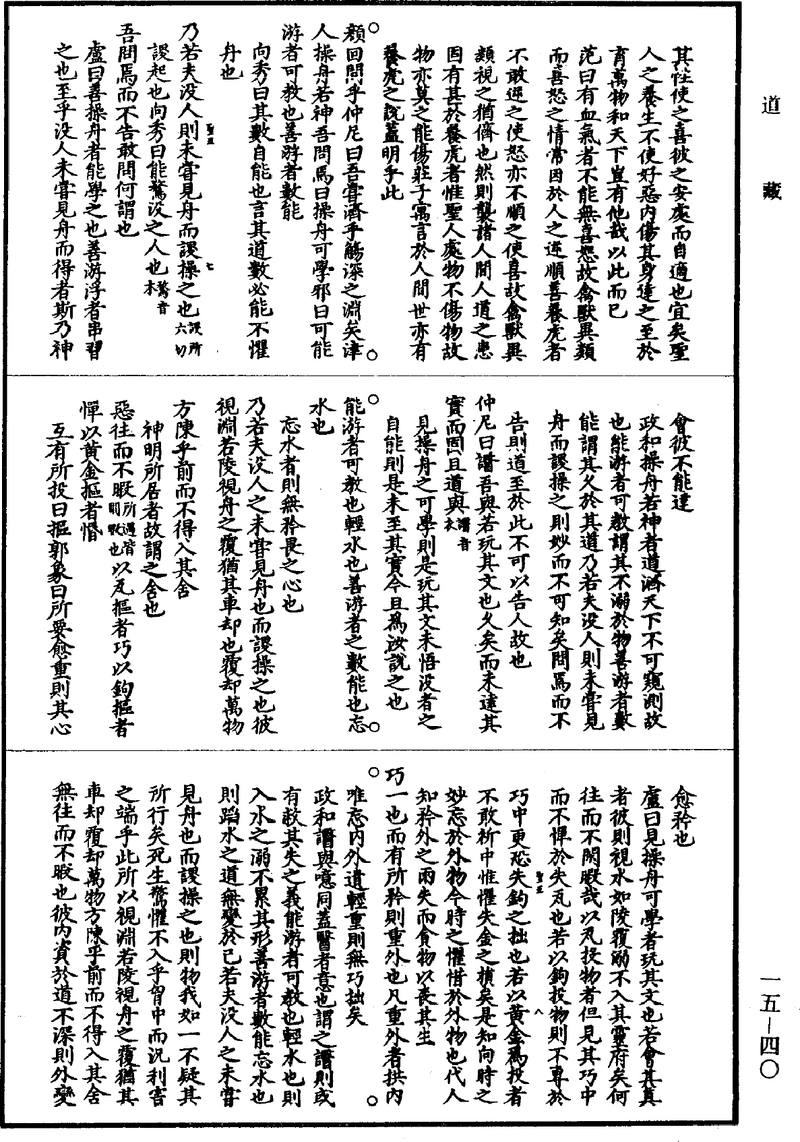 道藏
其性使之喜彼之安處而自適也宜矣聖
人之養生不使好惡內傷其身達之至於
育萬物和天下豈有他哉以此而已
范曰有血氣者不能無喜怒故禽獸異類
而喜怒之情常因於人之逆順善養虎者
不敢逆之使怒亦不順之使喜故禽獸異
類視之猶儕也然則襲諸人間人道之患
固有甚於養虎者惟聖人處物不傷物故
物亦莫之能傷莊子寓言於人間世亦有
養虎之說蓋明乎此
顏回問乎仲尼曰吾嘗濟乎觴深之淵矣津
人操舟若神吾問焉曰操舟可學邪曰可能
游者可教也善游者數能
向秀曰其數自能也言其道數必能不懼
舟也
乃若夫没人則未嘗見舟而謖操之也謖所六切
謖起也向秀曰能鶩没之人也鶩音木
吾問焉而不告敢問何謂也
盧曰善操舟者能學之也善游浮者串習
之也至乎没人未嘗見舟而得者斯乃神
會彼不能達
政和操舟若神者道濟天下不可窺測故
也能游者可教謂其不溺於物善游者數
能謂其久於其道乃若夫没人則未嘗見
舟而謖操之則妙而不可知矣問焉而不
告則道至於此不可以告人故也
仲尼曰譆吾與若玩其文也久矣而未達其
實而固且道與譆音衣
見操舟之可學則是玩其文未悟没者之
自能則是未至其實今且爲汝說之也
能游者可教也輕水也善游者之數能也忘
水也
忘水者則無矜畏之心也
乃若夫没人之未嘗見舟也而謖操之也彼
視淵若陵視舟之覆猶其車却也覆却萬物
方陳乎前而不得入其舍
神明所居者故謂之舍也
惡往而不暇所遇皆閑暇也以瓦摳者巧以鉤摳者
憚以黃金摳者惛
互有所投曰摳郭象曰所要愈重則其心
愈矜也
盧曰見操舟可學者玩其文也若會其真
者彼則視水如陵覆溺不入其靈府矣何
往而不閑暇哉以瓦投物者但見其巧中
而不憚於失瓦也若以鉤投物則不專於
巧中更恐失鉤之拙也若以黃金爲投者
不敢祈中惟懼失金之損矣是知向時之
妙忘於外物今時之懼惜於外物也代人
知矜外之兩失而貪物以喪其生
巧一也而有所矜則重外也凡重外者拱內
唯忘內外遺輕重則無巧拙矣
政和譆與噫同蓋醫者意也謂之譆則或
有救其失之義能游者可教也輕水也則
入水之溺不累其形善游者數能忘水也
則蹈水之道無變於己若夫没人之未嘗
見舟也而謖操之也則物我如一不疑其
所行矣死生驚懼不入乎胷中而況利害
之端乎此所以視淵若陵視舟之覆猶其
車却覆却萬物方陳乎前而不得入其舍
無往而不暇也彼內資於道不深則外變
一五—四〇